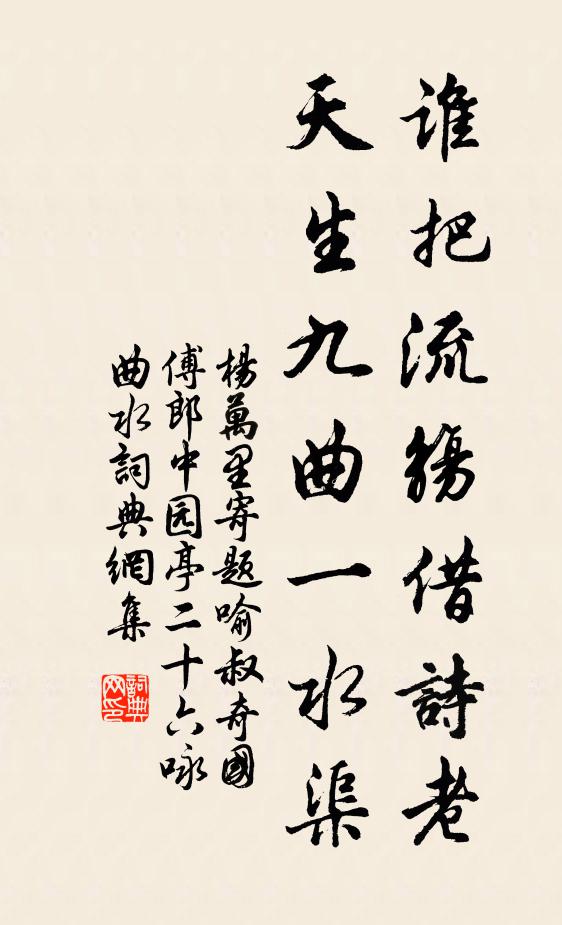 誰把流觴借詩老
天生九曲一水渠
楊萬里寄題喻叔奇國
傅郎中园亭二十六咏
曲水詞典網集
詞典网印